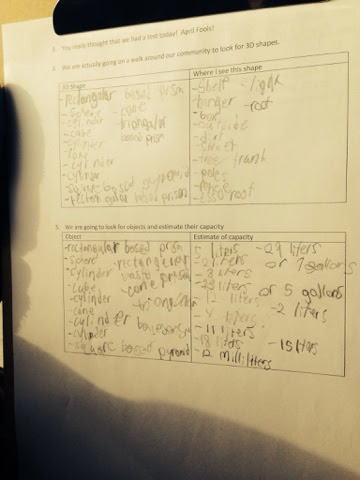 1. You really thought that we had a test today! April Fools!
2. We are actually going on a walk around our community to look for 3D shapes.
3D Shape
Where I see this shape
-rectangular based prism
-sphere -cone
-cylinder -triangular
-cube based prism
-cylinder
-cone
-cylinder
-cylinder
-square based pyramid
-rectangular based prism
-shelf -light
-roof
-box
-outside
-street
-tree trunk
-poles
roof
3. We are going to look for objects and estimate their capacity
Object
Estimate of capacity
-rectangular based prism
-sphere -rectangular
-cylinder based prism
-cube -cone
-cylinder -triangular
-cone
-cylinder
-cylinder
-square based pyramid
liters -29 liters
-2 liters or 7 gallons
-3 liters
-23 liters or 5 gallons
-12 liters
-4 liters -2 liters
-11 liters
-18 liters -15 liters
-12 milliliters